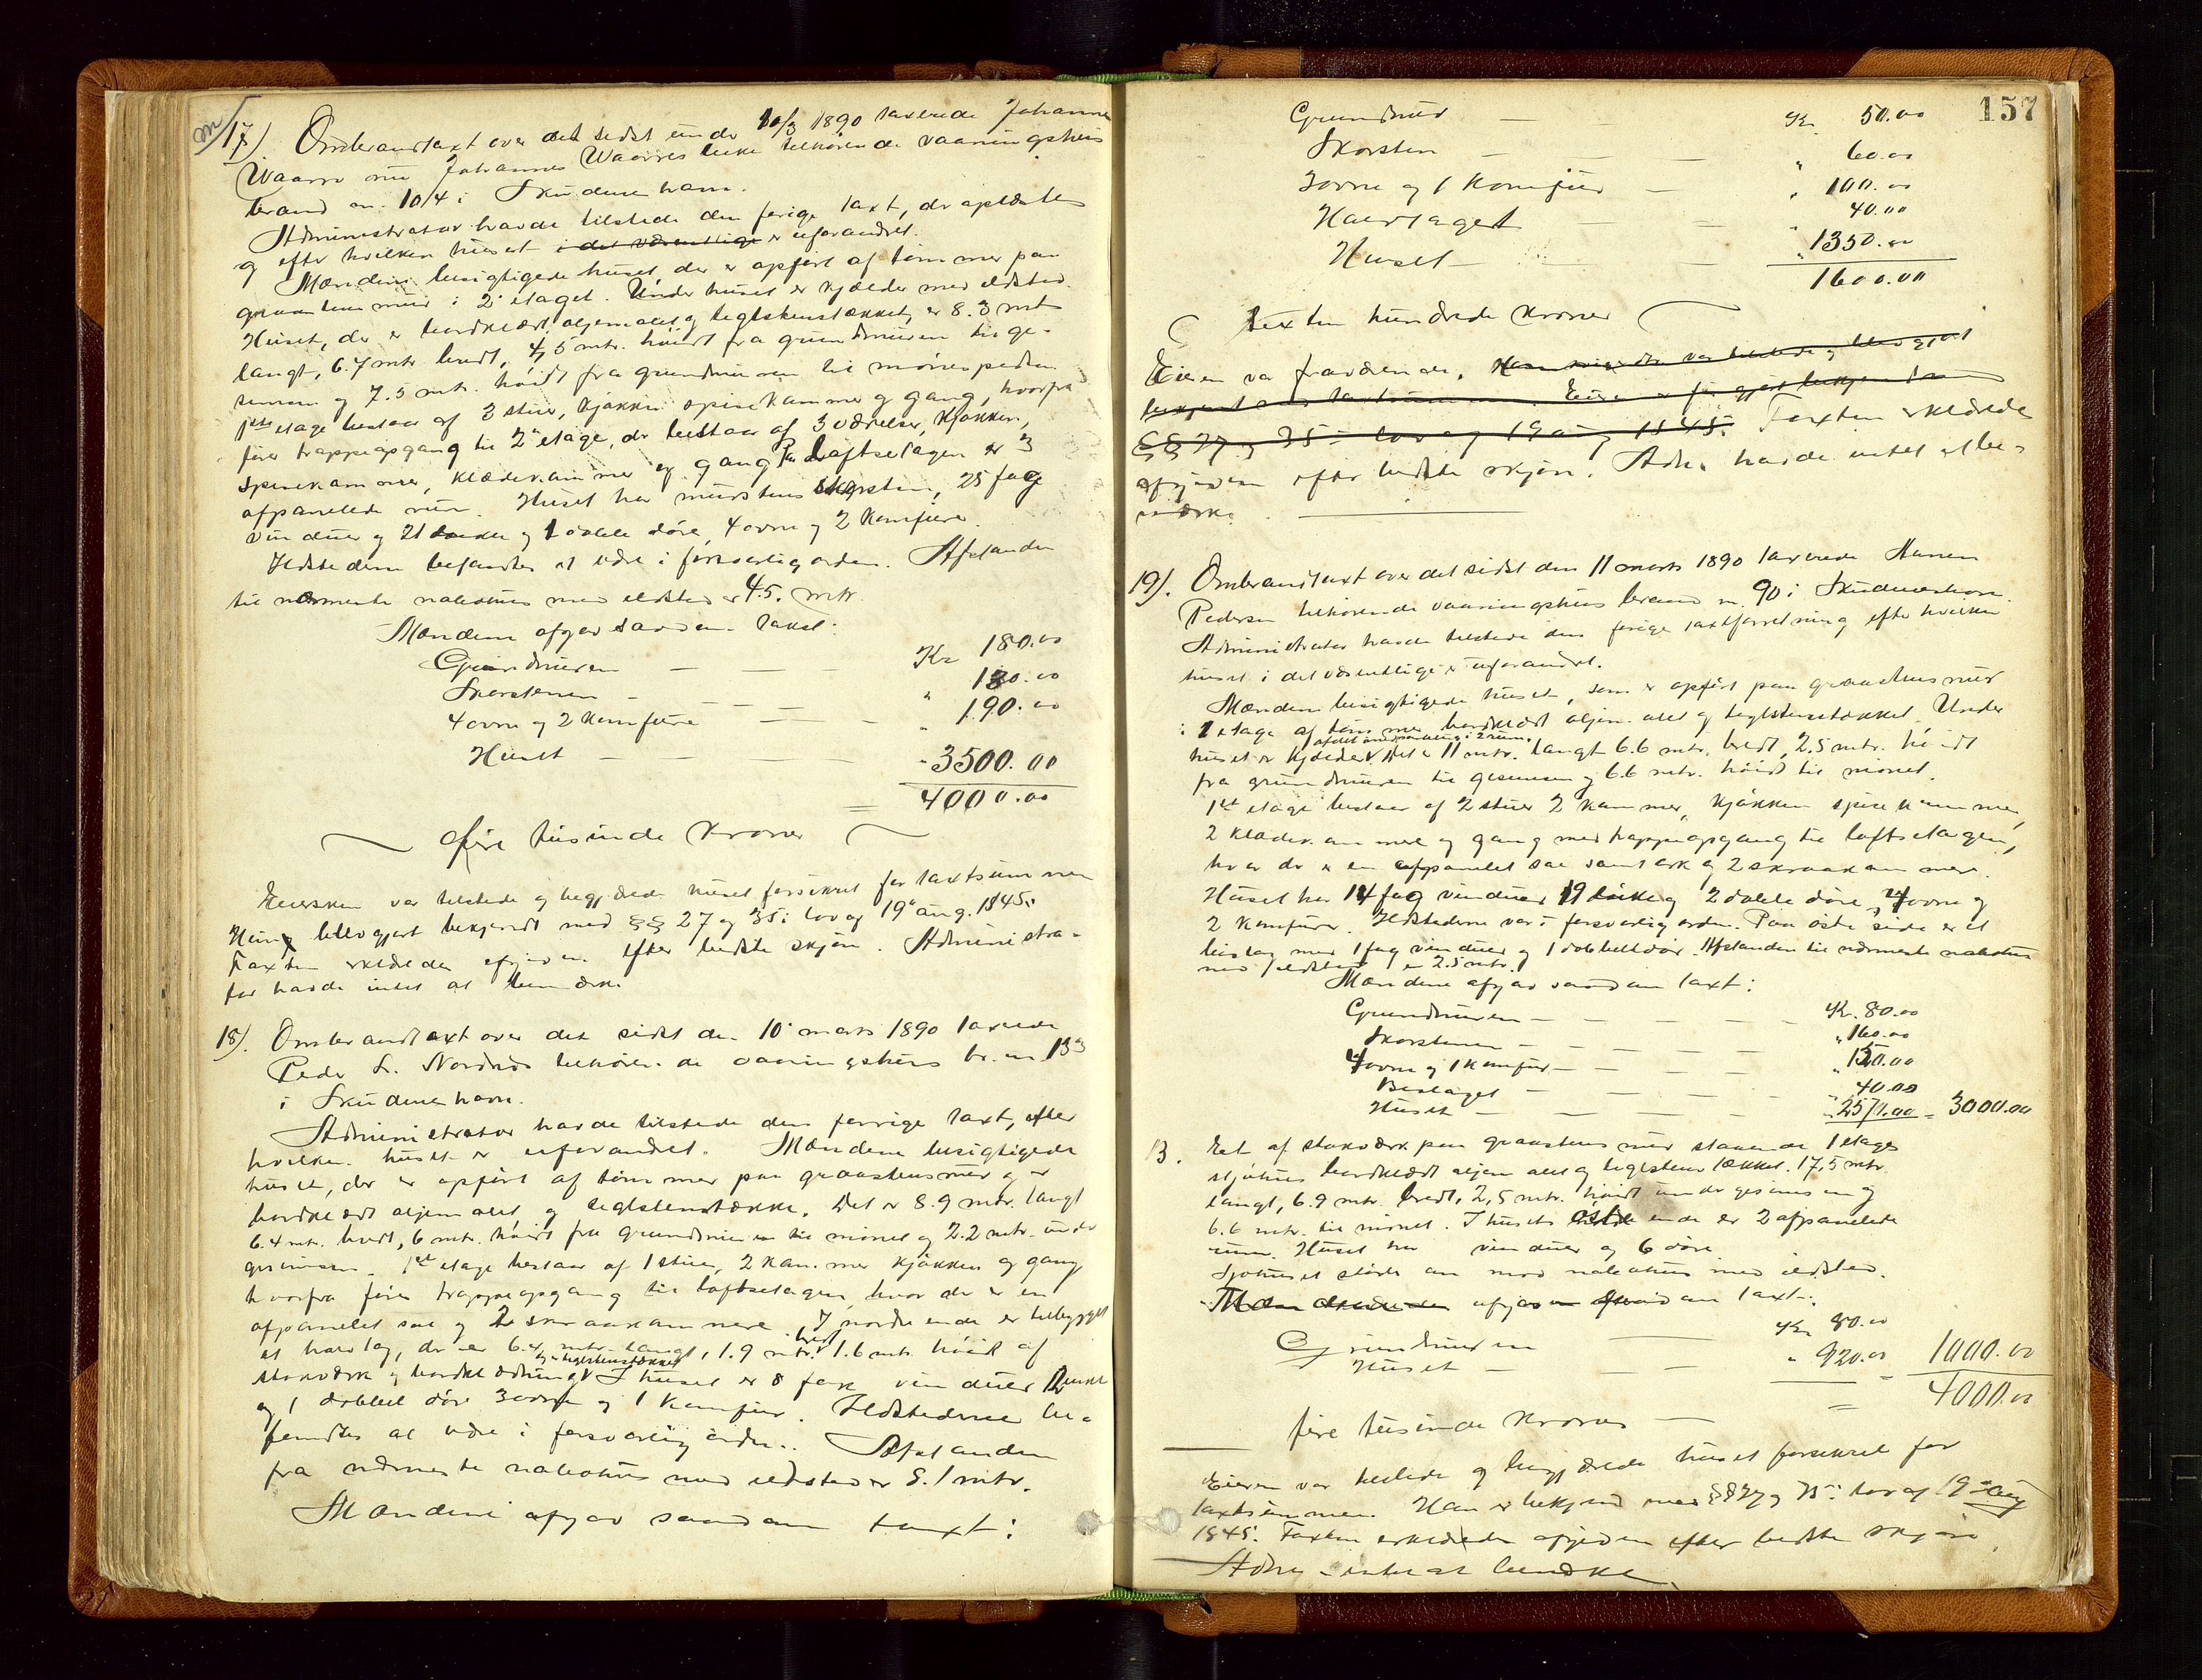 17) Ombrandtaxt over det sidst under 10/3 1890 taxerede Johannes
Waarre nu Johannes Waarres enke tilhørende vaaningshus
brand nr. 104 i Skudenehavn.
Administrator havde tilstede den forige taxt, der oplæstes
og efter hvilken huset i det væsentlige er uforandret.
Mændene besigtigede huset, der er opført af tømmer paa
graastensmur i 2 etaget. Under huset er kjælder med ildsted.
Huset, der er bordklædt, oljemalet og teglstenstækket, er 8.3 mtr.
langt, 6.7 mtr. bredt, 4,5 mtr. høidt fra grundmuren til ge-
simsen og 7.5 mtr. høidt fra grundmuren til mønespidsen
1ste etage bestaar af 3 stuer, kjøkken spisekammer og gang, hvorfra
fører trappeopgang til 2den etage, der bestaar af 3 værelser, kjøkken,
spisekammer, klædekammer og gang. Paa loftsetagen er 3
afpanelede rum. Huset har murstens skorsten, 25 fag
vinduer og 21 enkle og 1 doble døre, 4 ovne og 2 komfurer.
Ildstederne befandtes at være i forsvarlig orden. Afstanden
til nærmeste nabohus med ildsted er 4.5. mtr.
Mændene afgav saadan taxt:
Grundmuren — — Kr 180.00
Skorstenen — — " 130.00
4 ovne og 2 komfurer — — " 190.00
Huset — — — " 3500.00
= 4000.00
fire tusinde kroner
Eiersken var tilstede og begjærede huset forsikret for taxtsummen
Hun blev gjort bekjendt med §§ 27 og 35 i lov af 19 aug. 1845.
Taxten erklæredes afgiven efter bedste skjøn. Administra-
tor havde intet at bemærke.
18). Ombrandtaxt over det sidst den 10 marts 1890 taxerede
Peder L. Nordnes tilhørende vaaningshus br. nr. 133
i Skudenehavn.
Administrator havde tilstede den forrige taxt, efter
hvilken huset er uforandret. Mændene besigtigede
huset, der er opført af tømmer paa graastensmur og er
bordklædt oljemalet og teglstenstække. Det er 8.9 mtr. langt
6.4 mtr. bredt, 6 mtr. høidt fra grundmuren til mønet og 2.2 mtr. under
gesimsen. 1ste etage bestaar af 1 stue, 2 kammer kjøkken og gang
hvorfra fører trappeopgang til loftsetagen, hvor der er en
afpanelet sal og 2 skraakammere. I nordre ende er tilbygget
et halvtag, der er 6.4 mtr. langt, 1.9 mtr. bredt 1.6 mtr. høidt af
stavværk og bordklædning og teglstenstækket. I huset er 8 fag vinduer 12 enkle
og 1 dobbel dør 3 ovne og 1 komfur. Ildstederne be-
fandtes at være i forsvarlig orden. Afstanden
fra nærmeste nabohus med ildsted er 8.1 mtr.
Mændene afgav saadan taxt:
157
Grundmur — — Kr. 50.00
Skorsten — — " 60.00
3 ovne og 1 komfur — " 100.00
Halvtaget — — " 40.00
Huset — — " 1350.00
1600.00
Sexten hundrede kroner
Eieren var fraværende.
§§ 27 og 35 i lov af 19 aug 1845. Taxten erklæredes
afgiven efter bedste skjøn. Adm. havde intet at be-
mærke.
19). Ombrandtaxt over det sidst den 11 marts 1890 taxerede Hansen
Pedersen tilhørende vaaningshus brand nr. 90 i Skudeneshavn.
Administrator havde tilstede den forige taxtforretning efter hvilken
huset i det væsentlige er uforandret.
Mændene besigtigede huset, som er opført paa graastens mur
i 1 etage af tømmer bordklædt oljemalet og teglstenstækket. Under
huset er kjælder afdelt i 2 rum. Det er 11 mtr. langt 6.6 mtr. bredt, 2.5 mtr. høidt
fra grundmuren til gesimsen og 6.6 mtr. høidt til mønet.
1ste etage bestaar af 2 stuer 2 kammer, kjøkken spisekammer,
2 klædekammere og gang med trappeopgang til loftsetagen,
hvor der er en afpanelet sal samt ark og 2 skraakammere.
Huset har 14 fag vinduer 19 enkle og 2 doble døre, 4 ovne og
2 komfurer. Ildstederne var i forsvarlig orden. Paa østre side er et
bislag med 1 fag vinduer og 1 dobbelt dør. Afstanden til nærmeste nabohus
med ildsted er 2.5 mtr.
Mændene afgav saadan taxt:
Grundmuren — — Kr. 80.00
Skorstenen — — " 160.00
4 ovne og 1 komfur — — " 150.00
Bislaget — " 40.00
Huset — — " 2570.00 = 3000.00
B. Et af stavværk paa graastens mur staaende 1 etages
sjøhus bordklædt oljemalet og teglstens tækket. 17,5 mtr.
langt, 6.9 mtr. bredt, 2,5 mtr. høidt under gesimsen og
6.6 mtr. til mønet. I husets østre ende er 2 afpanelede
rum. Huset har vinduer og 6 døre.
Sjøhuset støder an mod nabohus med ildsted.
Mændene afgav saadan taxt:
Grundmuren — Kr 80.00
Huset — — " 920.00 = 1000.00
= 4000.00
fire tusinde kroner —
Eieren var tilstede og begjærede huset forsikret for
taxtsummen. Han er bekjend med §§ 27 og 35 i lov af 19 aug
1845. Taxten erklæredes afgiven efter bedste skjøn
Adm. intet at bemærke